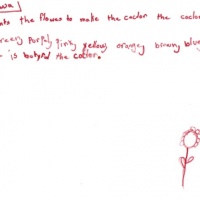 wa
the flowes to make the coclor the coclor
reen, Porpol, Pinky yellow, orangey browny blue
is butyful the coclor.